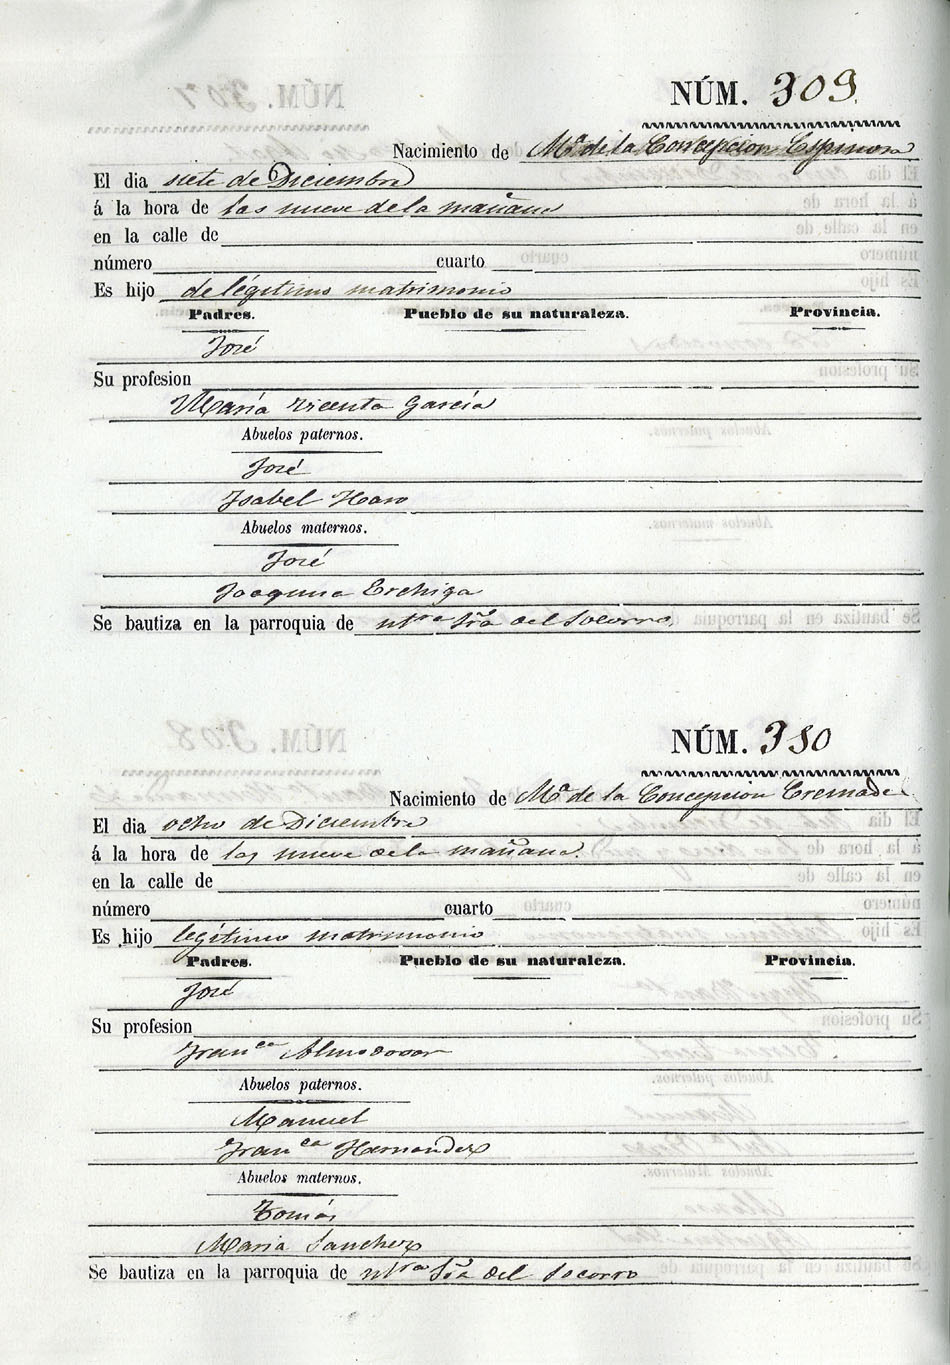 NÚM. 309
Nacimiento de Mª de la Concepcion Espinosa
El dia siete de Diciembre
á la hora de las nueve de la mañana
en la calle de
número cuarto
Es hijo de légitimo matrimonio
Padres. Pueblo de su naturaleza. Provincia.
José
Su profesion
Maria Vicenta Garcia
Abuelos paternos.
José
Isabel Haro
Abuelos maternos.
José
Joaquina
Se bautiza en la parroquia de ntra Sra del Socorro
NÚM. 310
Nacimiento de Mª de la Concepcion Cremade
El dia ocho de Diciembre
á la hora de las nueve de la mañana.
en la calle de
número cuarto
Es hijo legítimo matrimonio
Padres. Pueblo de su naturaleza. Provincia.
José
Su profesion
Franca Almodovar
Abuelos paternos.
Manuel
Franca Hernandez
Abuelos maternos.
Tomás
Maria Sanchez
Se bautiza en la parroquia de ntra Sra del Socorro